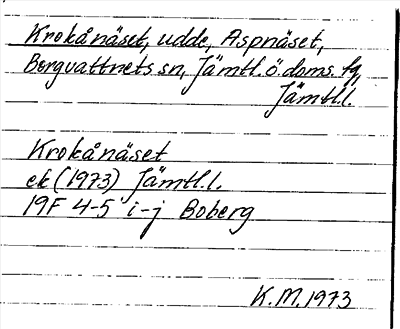 Krokånäset, udde, Aspnäset,
Bergvattnets sn, Jämtl. ö. doms. tg,
Jämtl.l.
Krokånäset
ek (1973) Jämtl.l.
19F 4-5 i-j Boberg
K.M. 1973